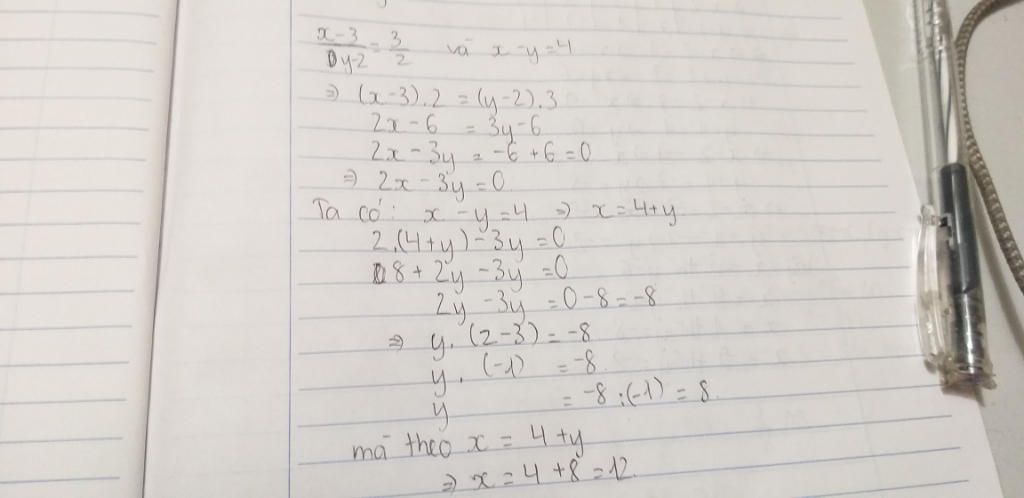 x-3/y-2 = 3/2 và x-y=4
⇒ (x-3).2 = (y-2).3
2x-6 = 3y-6
2x-3y = -6+6=0
⇒ 2x-3y=0.
Ta có: x-y=4 ⇒ x=4+y
2.(4+y)-3y=0
8+2y-3y=0
2y-3y =0-8=-8
⇒ y.(2-3)=-8
y.(-1) =-8.
y = -8:(-1) = 8.
mà theo x = 4+y
⇒ x=4+8=12.